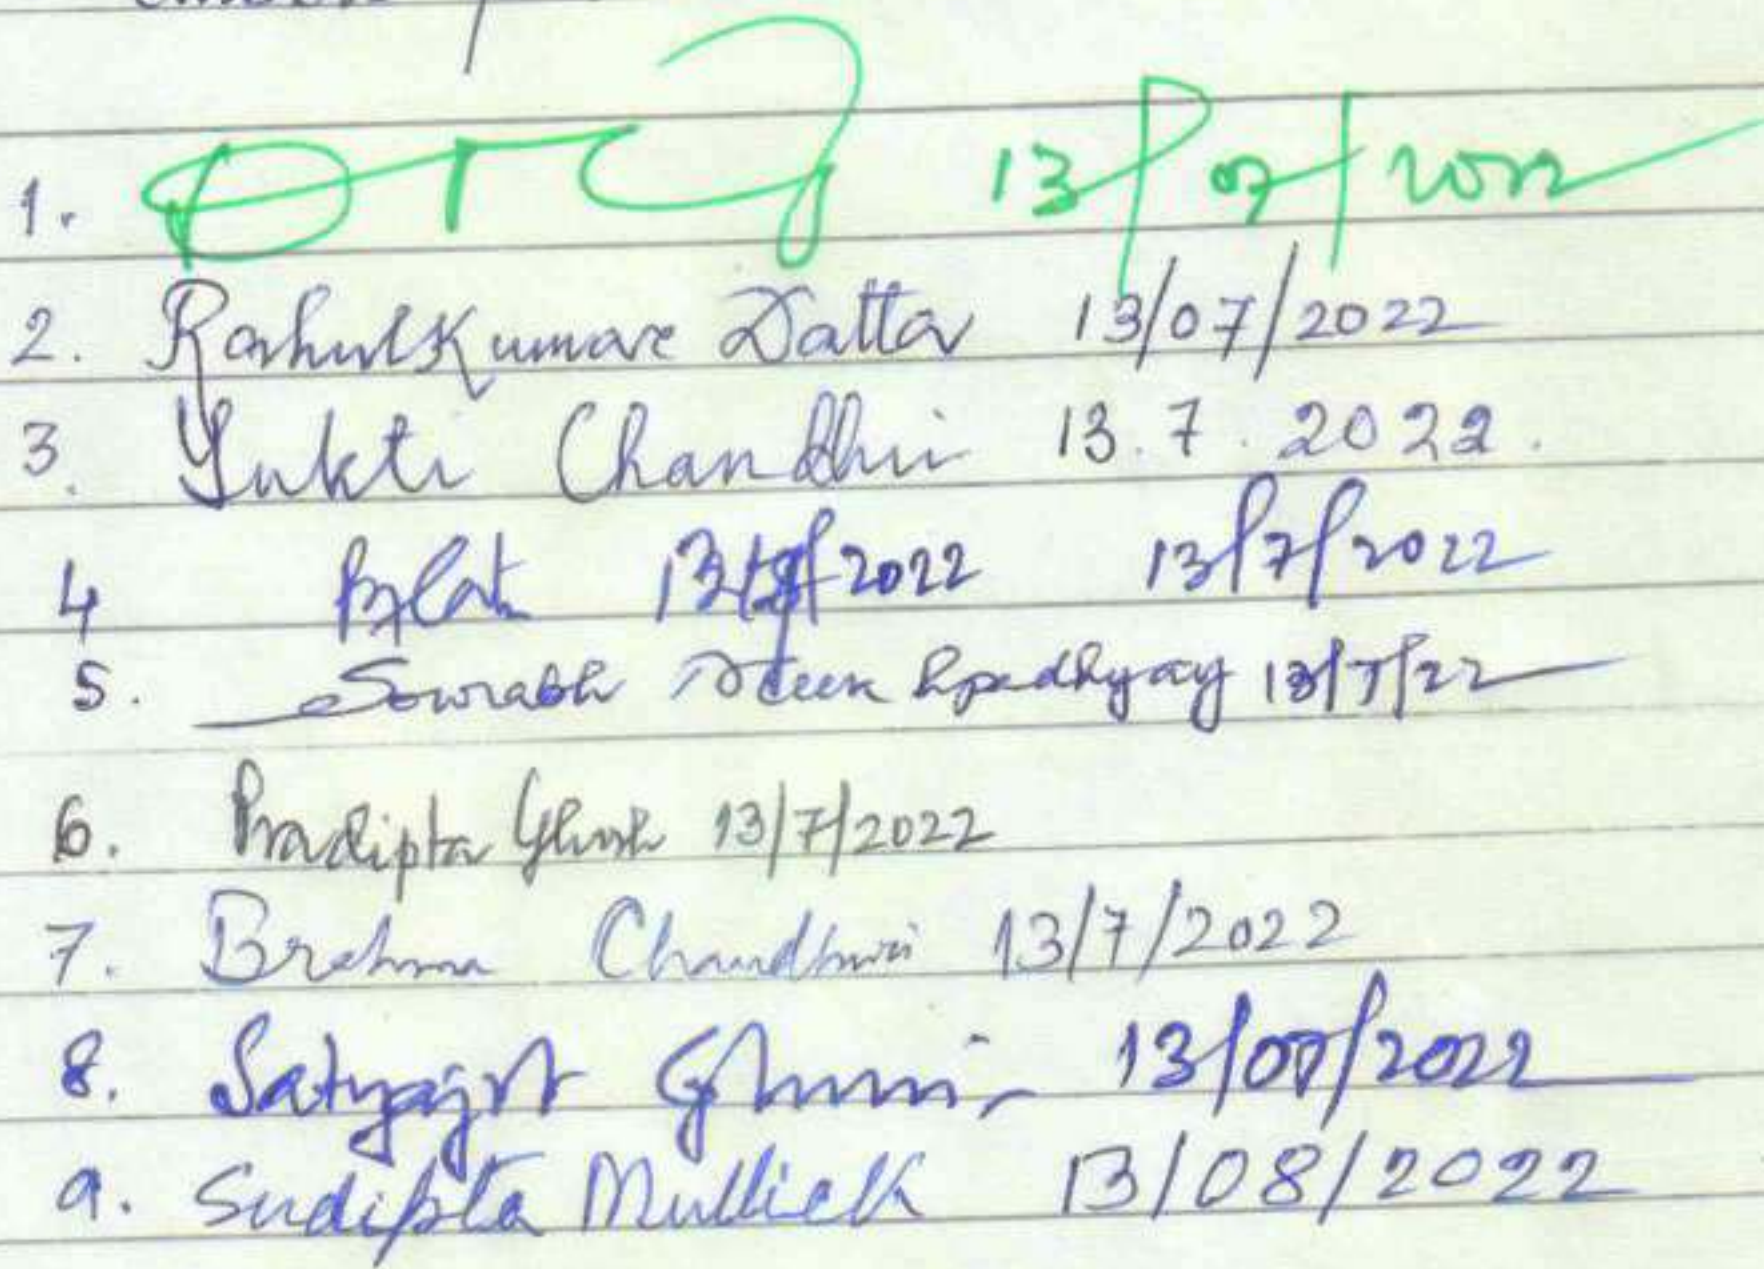 1. 13/07/2022
2. Rahul Kumar Datta 13/07/2022
3. Yukti Chandhri 13.7.2022.
4 13/7/2022
5. Sourabh Upadhyay 13/7/22
6. Pradipta Ghosh 13/7/2022
7. Brahma Chaudhuri 13/7/2022
8. Satyajit 13/07/2022
9. Sudipta Mullick 13/08/2022